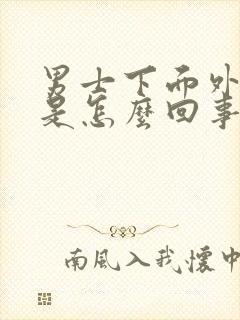 男士下面外
是怎麼回事
南風入我懷中